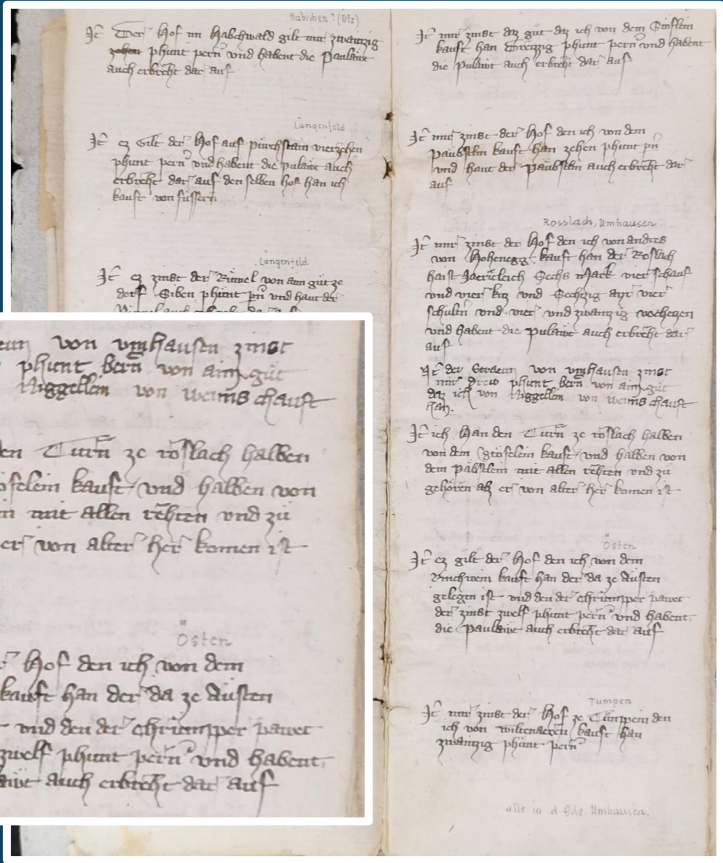 Habichen? (Dtz)
It Der Hof im Habchwald gilt mir zwainzig
zehen phunt pern und habent die Paulaiut
auch erbrecht dar auf
Langenfeld
It ez Gilt der Hof auf purchstain vierzehen
phunt pern und habent die pulaiut auch
erbrecht dar auf den selben hof han ich
kauft von füssern
Langenfeld
It ez zinst der von ain gut ze
dorf Siben phunt pn und haut der
It mir zinst daz gut daz ich von dem Gröslein
kauft han Dreizzig phunt pern und habent
die Pulaiut auch erbrecht dar auf
It mir zinst der Hof den ich von dem
Päubstlin kauft han zehen phunt pn
und haut der Päubstlin auch erbrecht dar
auf
Rosslach, Umhausen
It mir zinst der Hof den ich von andres
von Hohenegg kauft han der Roslach
haist Jaerichleich Sechs Mark vier schauf
und vier kiz und Sechzig ayr vier
schultn und vier und zwainzig vochezen
und habent die Pulaiut auch erbrecht dar
auf
It der von vmhausen zinst
mir dreu phunt bern von aim gut
daz ich von Niggellem von chauft
han
It ich Han den Turn ze röslach halben
von dem gröselein kauft und halben von
dem päbstlein mit allen rehten und zu
gehören alz er von alter her komen ist
Östen
It ez gilt der Hof den ich von dem
kauft han der da ze Austen
gelegen ist und den der chriempper pawet
der zinst zwelf phunt pern und habent
die Paulaiut auch erbrecht dar auf
Tumpen
It mir zinst der Hof ze Tumpein den
ich von kauft han
zwainzig phunt pern
alle in d Gde. Umhausen.
von vmhausen zinst
phunt bern von aim gut
Niggellem von chauft
Turn ze röslach halben
kauft und halben von
mit allen rehten und zu
er von alter her komen ist
Östen
Hof den ich von dem
kauft han der da ze Austen
und den der chriempper pawet
zwelf phunt pern und habent
auch erbrecht dar auf